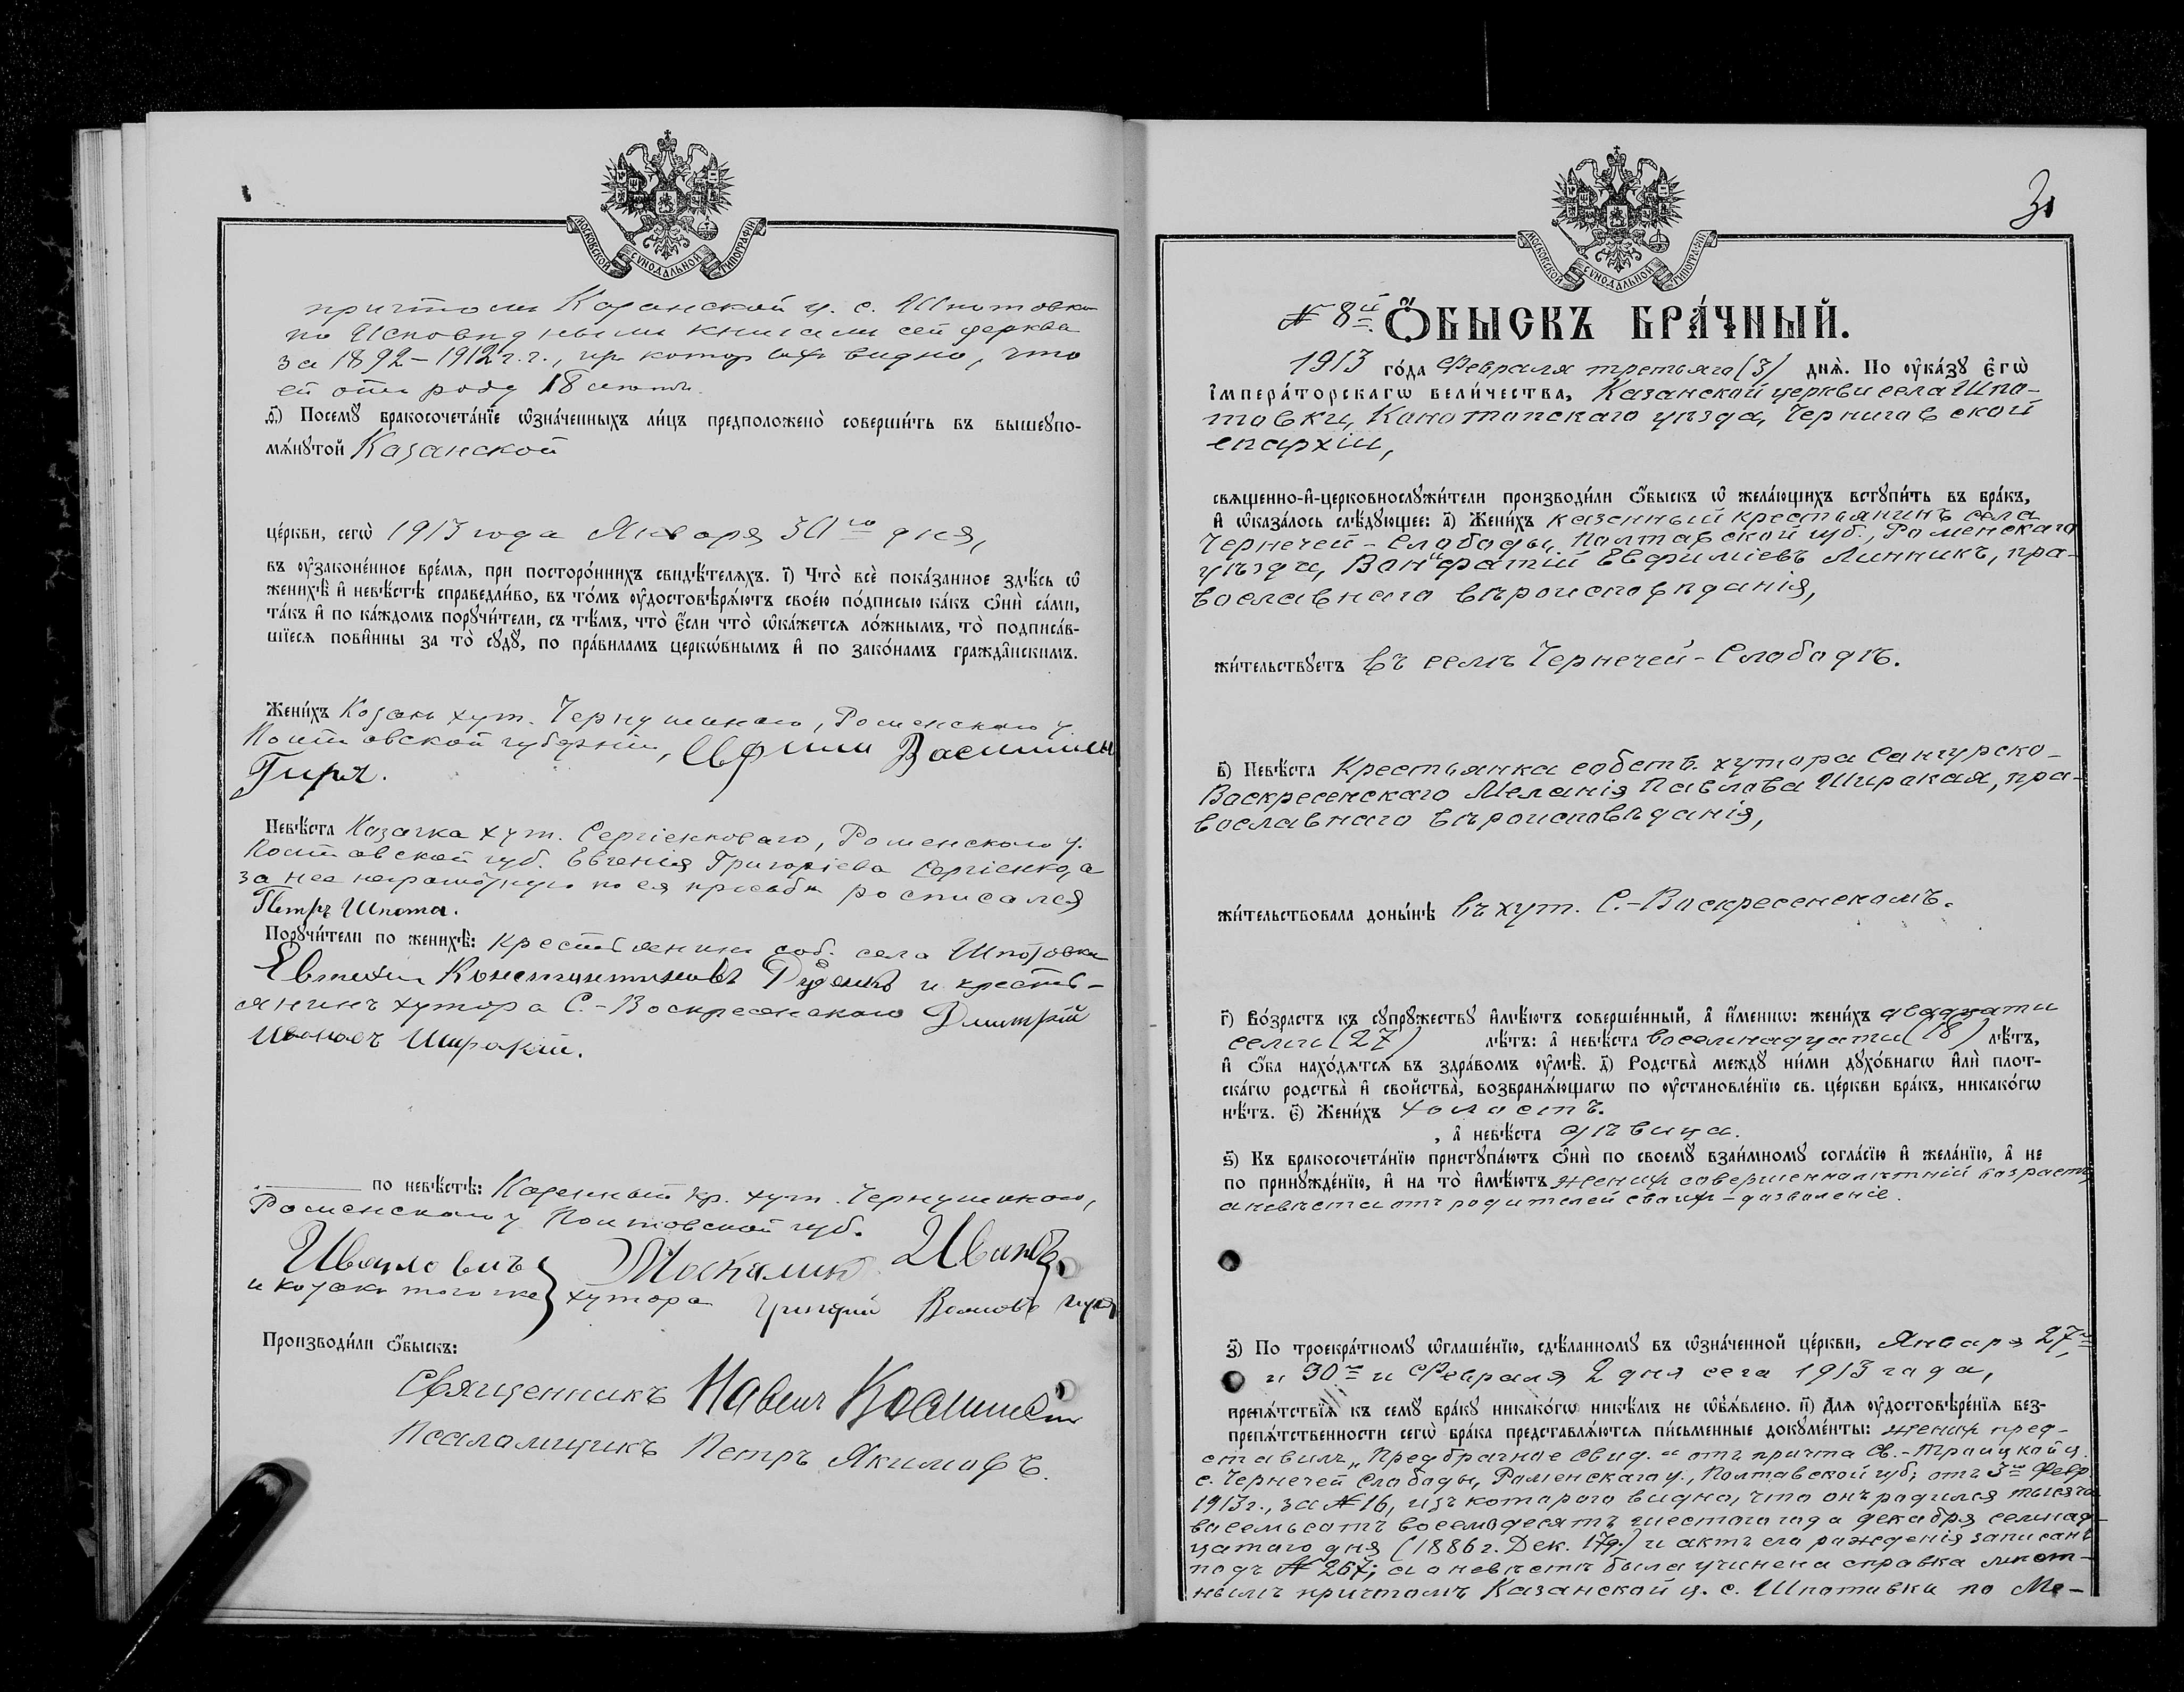 МОСКОВСКОЙ СѴНОДАЛЬНОЙ ТИПОГРАФІИ
причтомъ Казанской ц. с. Шпотовки
по Исповѣднымъ книгамъ сей церкви
за 1892–1912 г.г., из котор видно, что
ей отъ роду 18 лѣтъ.
ѳ҃) Посемꙋ̀ бракосочета́нїе ѡ҆зна́ченныхъ ли́цъ предположено̀ соверши́ть въ вышеꙋпо-
мѧ́нꙋтой Казанской
це́ркви, сегѡ̀ 1913 года Января 30го дня,
въ ᲂу҆зако́не́нное вре́мѧ, при посторо́ннихъ свидѣ́телѧхъ. і҃) Что̀ всѐ пока́занное здѣ́сь ѡ҆
женихѣ̀ и҆ невѣ́стѣ справедли́во, въ то́мъ ᲂу҆достовѣрѧ́ютъ свое́ю по́дписью ка́къ ѻ҆нѝ са́ми,
та́къ и҆ по ка́ждомъ порꙋчи́тели, съ тѣ́мъ, что̀ є҆́сли что̀ ѡ҆ка́жетсѧ ло́жнымъ, то̀ подписа́в-
шїесѧ пови́нны за то̀ сꙋдꙋ̀, по пра́виламъ церко́внымъ и҆ по зако́намъ гражда́нскимъ.
Жени́хъ Козакъ хут. Чернушиного, Роменского у.
Полтавской губерніи, Ефимъ Васильевъ
Гиря.
Невѣ́ста Казачка хут. Сергіенкового, Роменского у.
Полтавской губ. Евгенія Григоріева Сергіенко, а
за нее неграмотную по ея просьбѣ росписался
Петръ Шпота.
Порꙋчи́тели по женихѣ̀: Крестьянинъ соб. села Шпотовки
Евтихій Константиновъ Руденко и крестья-
янинъ хутора С.-Воскресенского Дмитрій
Ивановъ Широкій.
по невѣ́стѣ: Казенный кр. хут. Чернушиного,
Роменского у Полтавской губ.
Иванъ
и козакъ того же хутора Григорій
Производи́ли ѻ҆́быскъ:
Священникъ Павелъ
Псаломщикъ Петръ Якимовъ.
3
МОСКОВСКОЙ СѴНОДАЛЬНОЙ ТИПОГРАФІИ
№ 8й Ѻ҆́БЫСКЪ БРА́ЧНЫЙ.
1913 го́да Февраля третьяго (3) днѧ̀. По ᲂу҆ка́зꙋ Є҆гѡ̀
І҆мпера́торскагѡ вели́чества, Казанской церкви села Шпо-
товки, Конотопскаго уѣзда, Черниговской
епархіи,
свѧщенно-и҆-церковнослꙋжи́тели производи́ли ѻ҆́быскъ ѡ҆ жела́ющихъ встꙋпи́ть въ бра́къ,
и҆ ѡ҆каза́лось слѣ́дꙋющее: а҃) Жени́хъ казенный крестьянинъ села
Чернечей-Слободы, Полтавской губ., Роменскаго
уѣзда, Вонифатій Евфиміевъ Линникъ, пра-
вославнаго вѣроисповѣданія,
жи́тельствꙋетъ въ селѣ Чернечей-Слободѣ.
в҃) Невѣ́ста Крестьянка собств. хутора Сангурско-
Воскресенскаго Меланія Павлова Широкая, пра-
вославнаго вѣроисповѣданія,
жи́тельствовала доны́нѣ въ хут. С.-Воскресенскомъ.
г҃) Во́зрастъ къ сꙋпрꙋ́жествꙋ и҆мѣ́ютъ соверше́нный, а҆ и҆́меннѡ: жени́хъ двадцати
семи (27) лѣ́тъ: а҆ невѣ́ста восемнадцати (18) лѣ́тъ,
и҆ ѻ҆́ба нахо́дѧтсѧ въ здра́вомъ ᲂу҆мѣ̀. д҃) Родства̀ междꙋ̀ ни́ми дꙋхо́внагѡ и҆лѝ плот-
ска́гѡ родства̀ и҆ свойства̀, возбранѧ́ющагѡ по ᲂу҆становле́нїю св. це́ркви бра́къ, никако́гѡ
нѣ́тъ. є҃) Жени́хъ холостъ.
, а҆ невѣ́ста дѣвица.
ѕ҃) Къ бракосочета́нїю пристꙋпа́ютъ ѻ҆нѝ по своемꙋ̀ взаи́мномꙋ согла́сїю и҆ жела́нїю, а҆ не
по принꙋжде́нїю, и҆ на то̀ и҆мѣ́ютъ жених совершеннолѣтній возрастъ,
а невѣста отъ родителей своих – дозволеніе.
з҃) По троекра́тномꙋ ѡ҆глаше́нїю, сдѣ́ланномꙋ въ ѡ҆зна́ченной це́ркви, Января 27го,
и 30го и Февраля 2 дня сего 1913 года,
препѧ́тствїѧ къ семꙋ̀ бра́кꙋ никако́гѡ никѣ́мъ не ѡ҆бъѧ́влено. и҃) Длѧ ᲂу҆достовѣре́нїѧ без-
препѧ́тственности сегѡ̀ бра́ка представлѧ́ютсѧ пи́сьменные докꙋме́нты: жених пред-
ставилъ „Предбрачное свид." отъ причта Св.-Троицкой ц.
с. Чернечей Слободы, Роменскаго у., Полтавской губ; отъ 3го Февр.
1913 г., за № 16, изъ котораго видно, что онъ родился тысяча
восемьсотъ восемьдесятъ шестого года декабря семнад-
цатаго дня (1886 г. Дек. 17д.) и актъ его рожденія записанъ
подъ № 267; а о невѣстѣ была учинена справка мѣст-
нымъ причтомъ Казанской ц. с. Шпотовки по Ме-